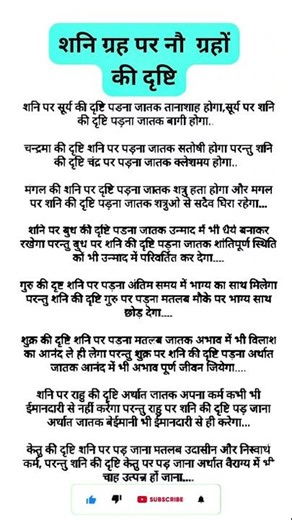 शनि ग्रह पर नौ ग्रहों
की दृष्टि
शनि पर सूर्य की दृष्टि पडना जातक तानाशाह होगा,सूर्य पर शनि
की दृष्टि पड़ना जातक बागी होगा..
चन्द्रमा की दृष्टि शनि पर पड़ना जातक सतोषी होगा परन्तु शनि
की दृष्टि चंद्र पर पड़ना जातक क्लेशमय होगा..
मगल की शनि पर दृष्टि पड़ना जातक शत्रु हता होगा और मगल
पर शनि की दृष्टि पड़ना जातक शत्रुओ से सदैव घिरा रहेगा...
शनि पर बुध की दृष्टि पडना जातक उन्माद में भी धैर्य बनाकर
रखेगा परन्तु बुध पर शनि की दृष्टि पड़ना जातक शांतिपूर्ण स्थिति
को भी उन्माद में परिवर्तित कर देगा....
गुरु की दृष्ट शनि पर पड़ना अंतिम समय में भाग्य का साथ मिलेगा
परन्तु शनि की दृष्टि गुरु पर पड़ना मतलब मौके पर भाग्य साथ
छोड़ देगा....
शुक्र की दृष्टि शनि पर पडना मतलब जातक अभाव में भी विलाश
का आनंद ले ही लेगा परन्तु शुक्र पर शनि की दृष्टि पडना अर्थात
जातक आनंद में भी अभाव पूर्ण जीवन जियेगा....
शनि पर राहु की दृष्टि अर्थात जातक अपना कर्म कभी भी
ईमानदारी से नहीं करेगा परन्तु राहु पर शनि की दृष्टि पड़ जाना
अर्थात जातक बेईमानी भी ईमानदारी से ही करेगा...
केतु की दृष्टि शनि पर पड़ जाना मतलब उदासीन और निस्वार्थ
कर्म, परन्तु शनि की दृष्टि केतु पर पड़ जाना अर्थात वैराग्य में भी
चाह उत्पन्न हों जाना....
SUBSCRIBE